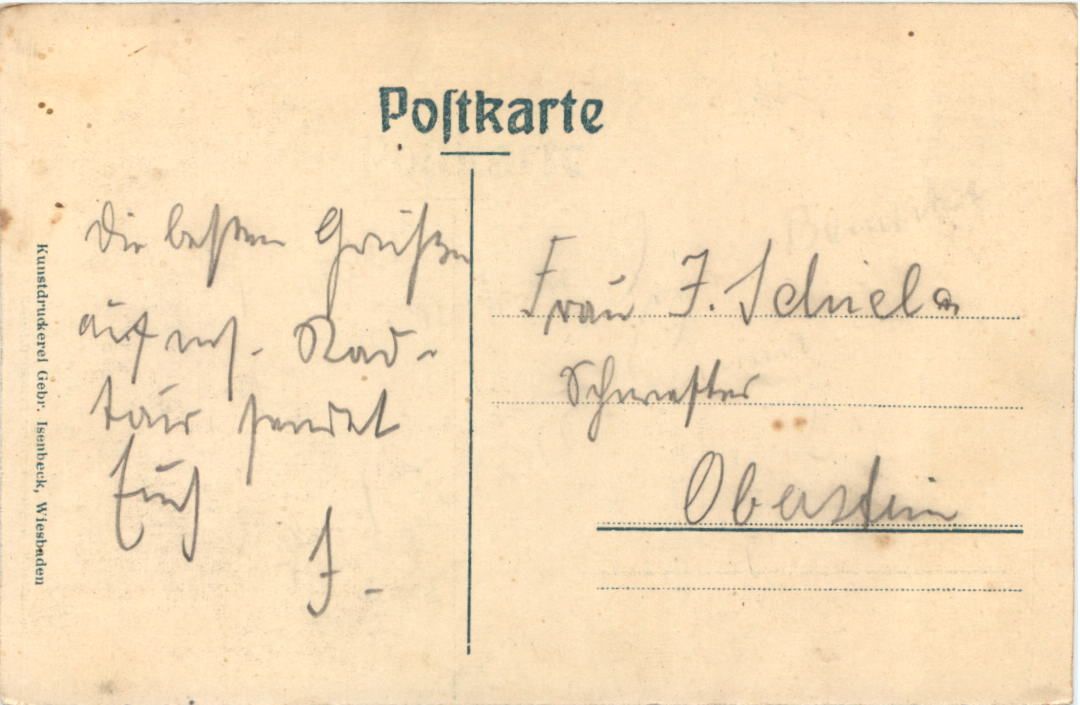 Postkarte
Die besten Grüße
auf uns. Rad-
tour sendet
Euch
J.
Frau J. Schiel
Schwester
Oberstein
Kunstdruckerei Gebr. Isenbeck, Wiesbaden